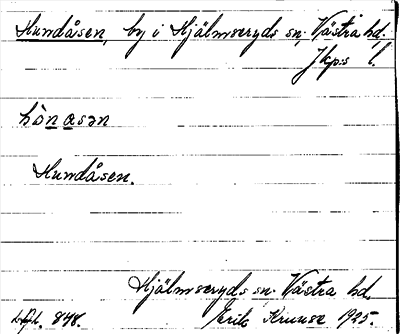 Hundåsen, by i Hjälmseryds sn, Västra hd,
Jkps l.
hònasən
Hundåsen.
Hjälmseryds sn. Västra hd.
848. Erik Kruuse 1925.